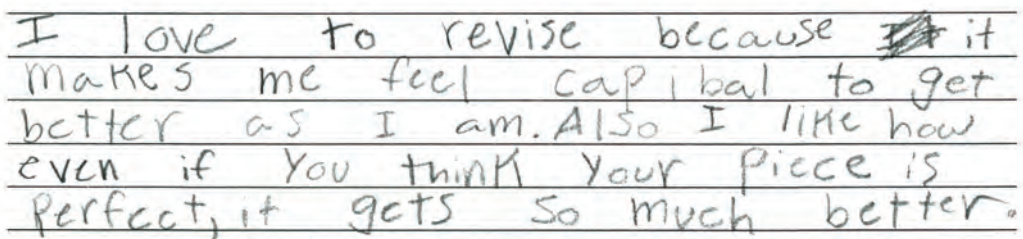 I love to revise because it
makes me feel capibal to get
better as I am. Also I like how
even if you think your piece is
perfect, it gets so much better.